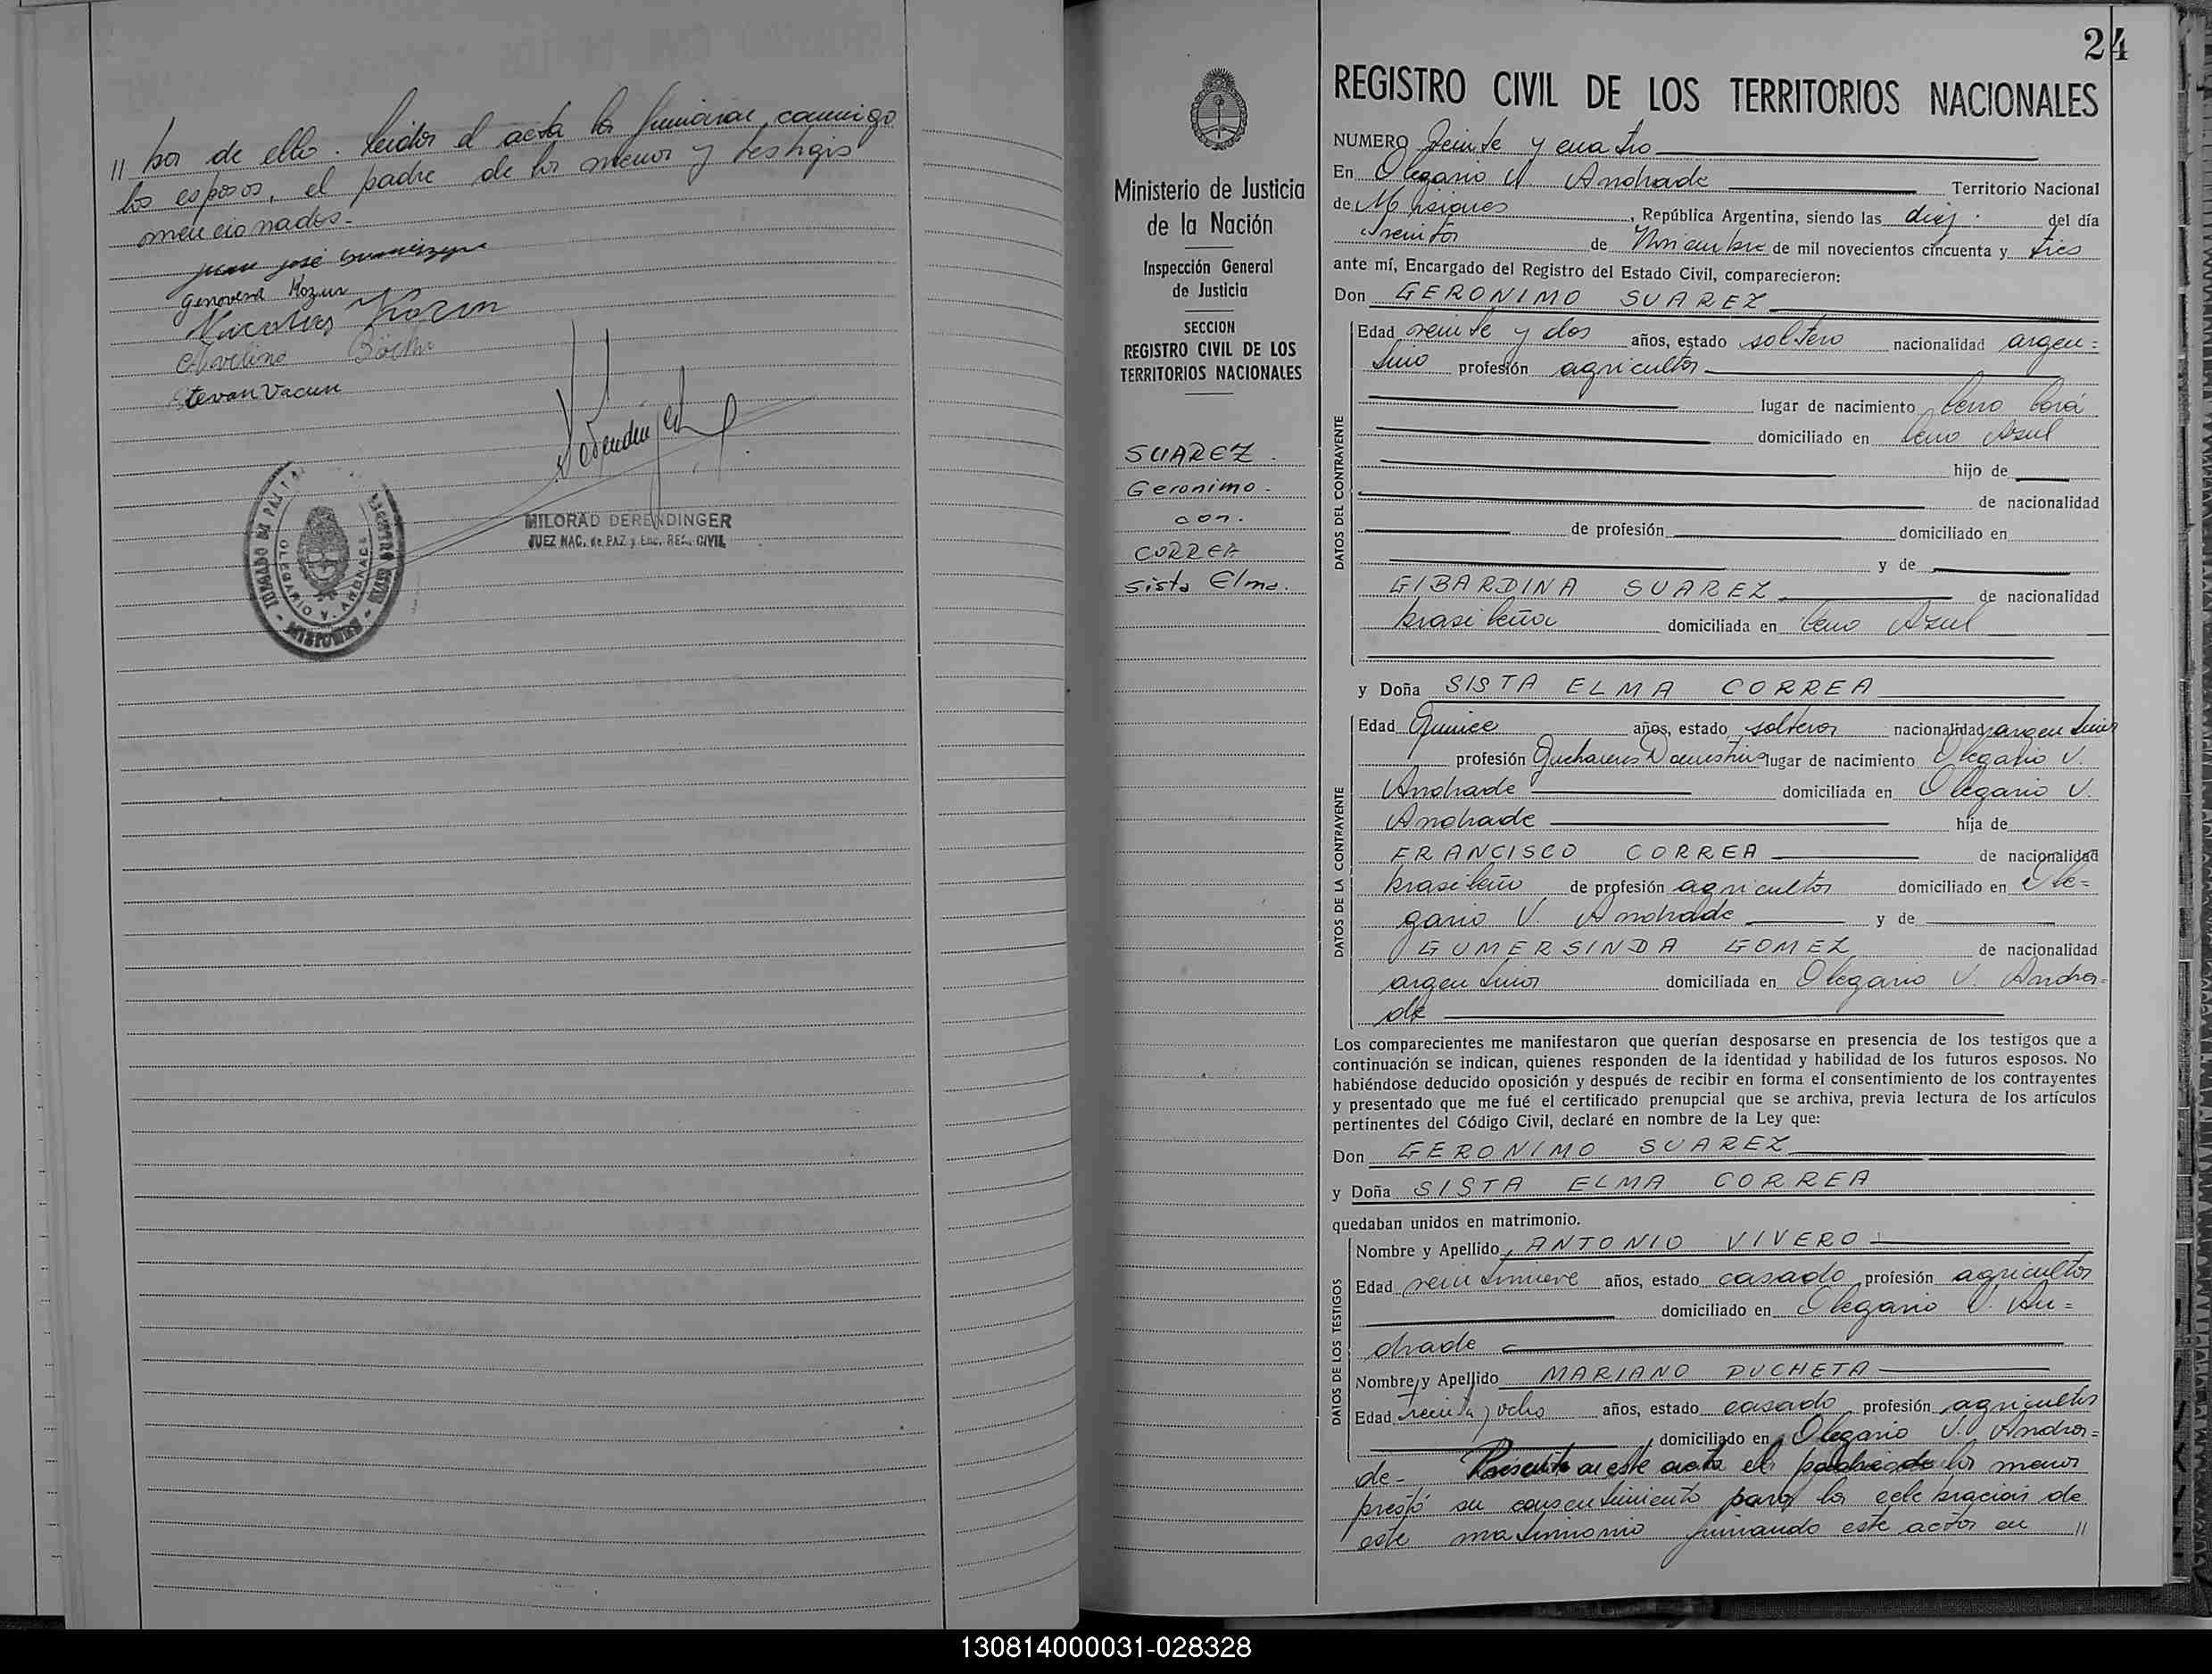 // bor de ello. Leida el acta la firman conmigo
los esposos, el padre de la menor y testigos
mencionados.-
Juan José
Genoveva Kozur
Avelino
Estevan Vacum
MILORAD DERENDINGER
JUEZ NAC. de PAZ y Enc. REG. CIVIL
JUZGADO DE PAZ
REGISTRO CIVIL
OLEGARIO V. ANDRADE
- MISIONES -
24
Ministerio de Justicia
de la Nación
Inspección General
de Justicia
SECCION
REGISTRO CIVIL DE LOS
TERRITORIOS NACIONALES
SUAREZ.
Geronimo.
con.
CORREA
Sista Elma.
REGISTRO CIVIL DE LOS TERRITORIOS NACIONALES
NUMERO Veinte y cuatro
En Olegario V. Andrade Territorio Nacional
de Misiones, República Argentina, siendo las diez. del día
de Noviembre de mil novecientos cincuenta y tres
ante mí, Encargado del Registro del Estado Civil, comparecieron:
Don GERONIMO SUAREZ
DATOS DEL CONTRAYENTE
Edad veinte y dos años, estado soltero nacionalidad argen=
tino profesión agricultor
lugar de nacimiento Cerro Corá
domiciliado en Cerro Azul
hijo de
de nacionalidad
de profesión domiciliado en
y de
GIBARDINA SUAREZ de nacionalidad
brasileña domiciliada en Cerro Azul
y Doña SISTA ELMA CORREA
DATOS DE LA CONTRAYENTE
Edad Quince años, estado soltera nacionalidad argentina
profesión Quehaceres Domesticos lugar de nacimiento Olegario V.
Andrade domiciliada en Olegario V.
Andrade hija de
FRANCISCO CORREA de nacionalidad
brasileño de profesión agricultor domiciliado en Ole=
gario V. Andrade y de
GUMERSINDA GOMEZ de nacionalidad
argentina domiciliada en Olegario V. Andra=
de
Los comparecientes me manifestaron que querían desposarse en presencia de los testigos que a
continuación se indican, quienes responden de la identidad y habilidad de los futuros esposos. No
habiéndose deducido oposición y después de recibir en forma el consentimiento de los contrayentes
y presentado que me fué el certificado prenupcial que se archiva, previa lectura de los artículos
pertinentes del Código Civil, declaré en nombre de la Ley que:
Don GERONIMO SUAREZ
y Doña SISTA ELMA CORREA
quedaban unidos en matrimonio.
DATOS DE LOS TESTIGOS
Nombre y Apellido ANTONIO VIVERO
Edad veintinueve años, estado casado profesión agricultor
domiciliado en Olegario V. An=
drade
Nombre y Apellido MARIANO DUCHETA
Edad Treinta y ocho años, estado casado profesión agricultor
domiciliado en Olegario V. Andra=
de- Presente a este acta el padre de la menor
prestó su consentimiento para la celebración de
este matrimonio firmando este acta en //
130814000031-028328